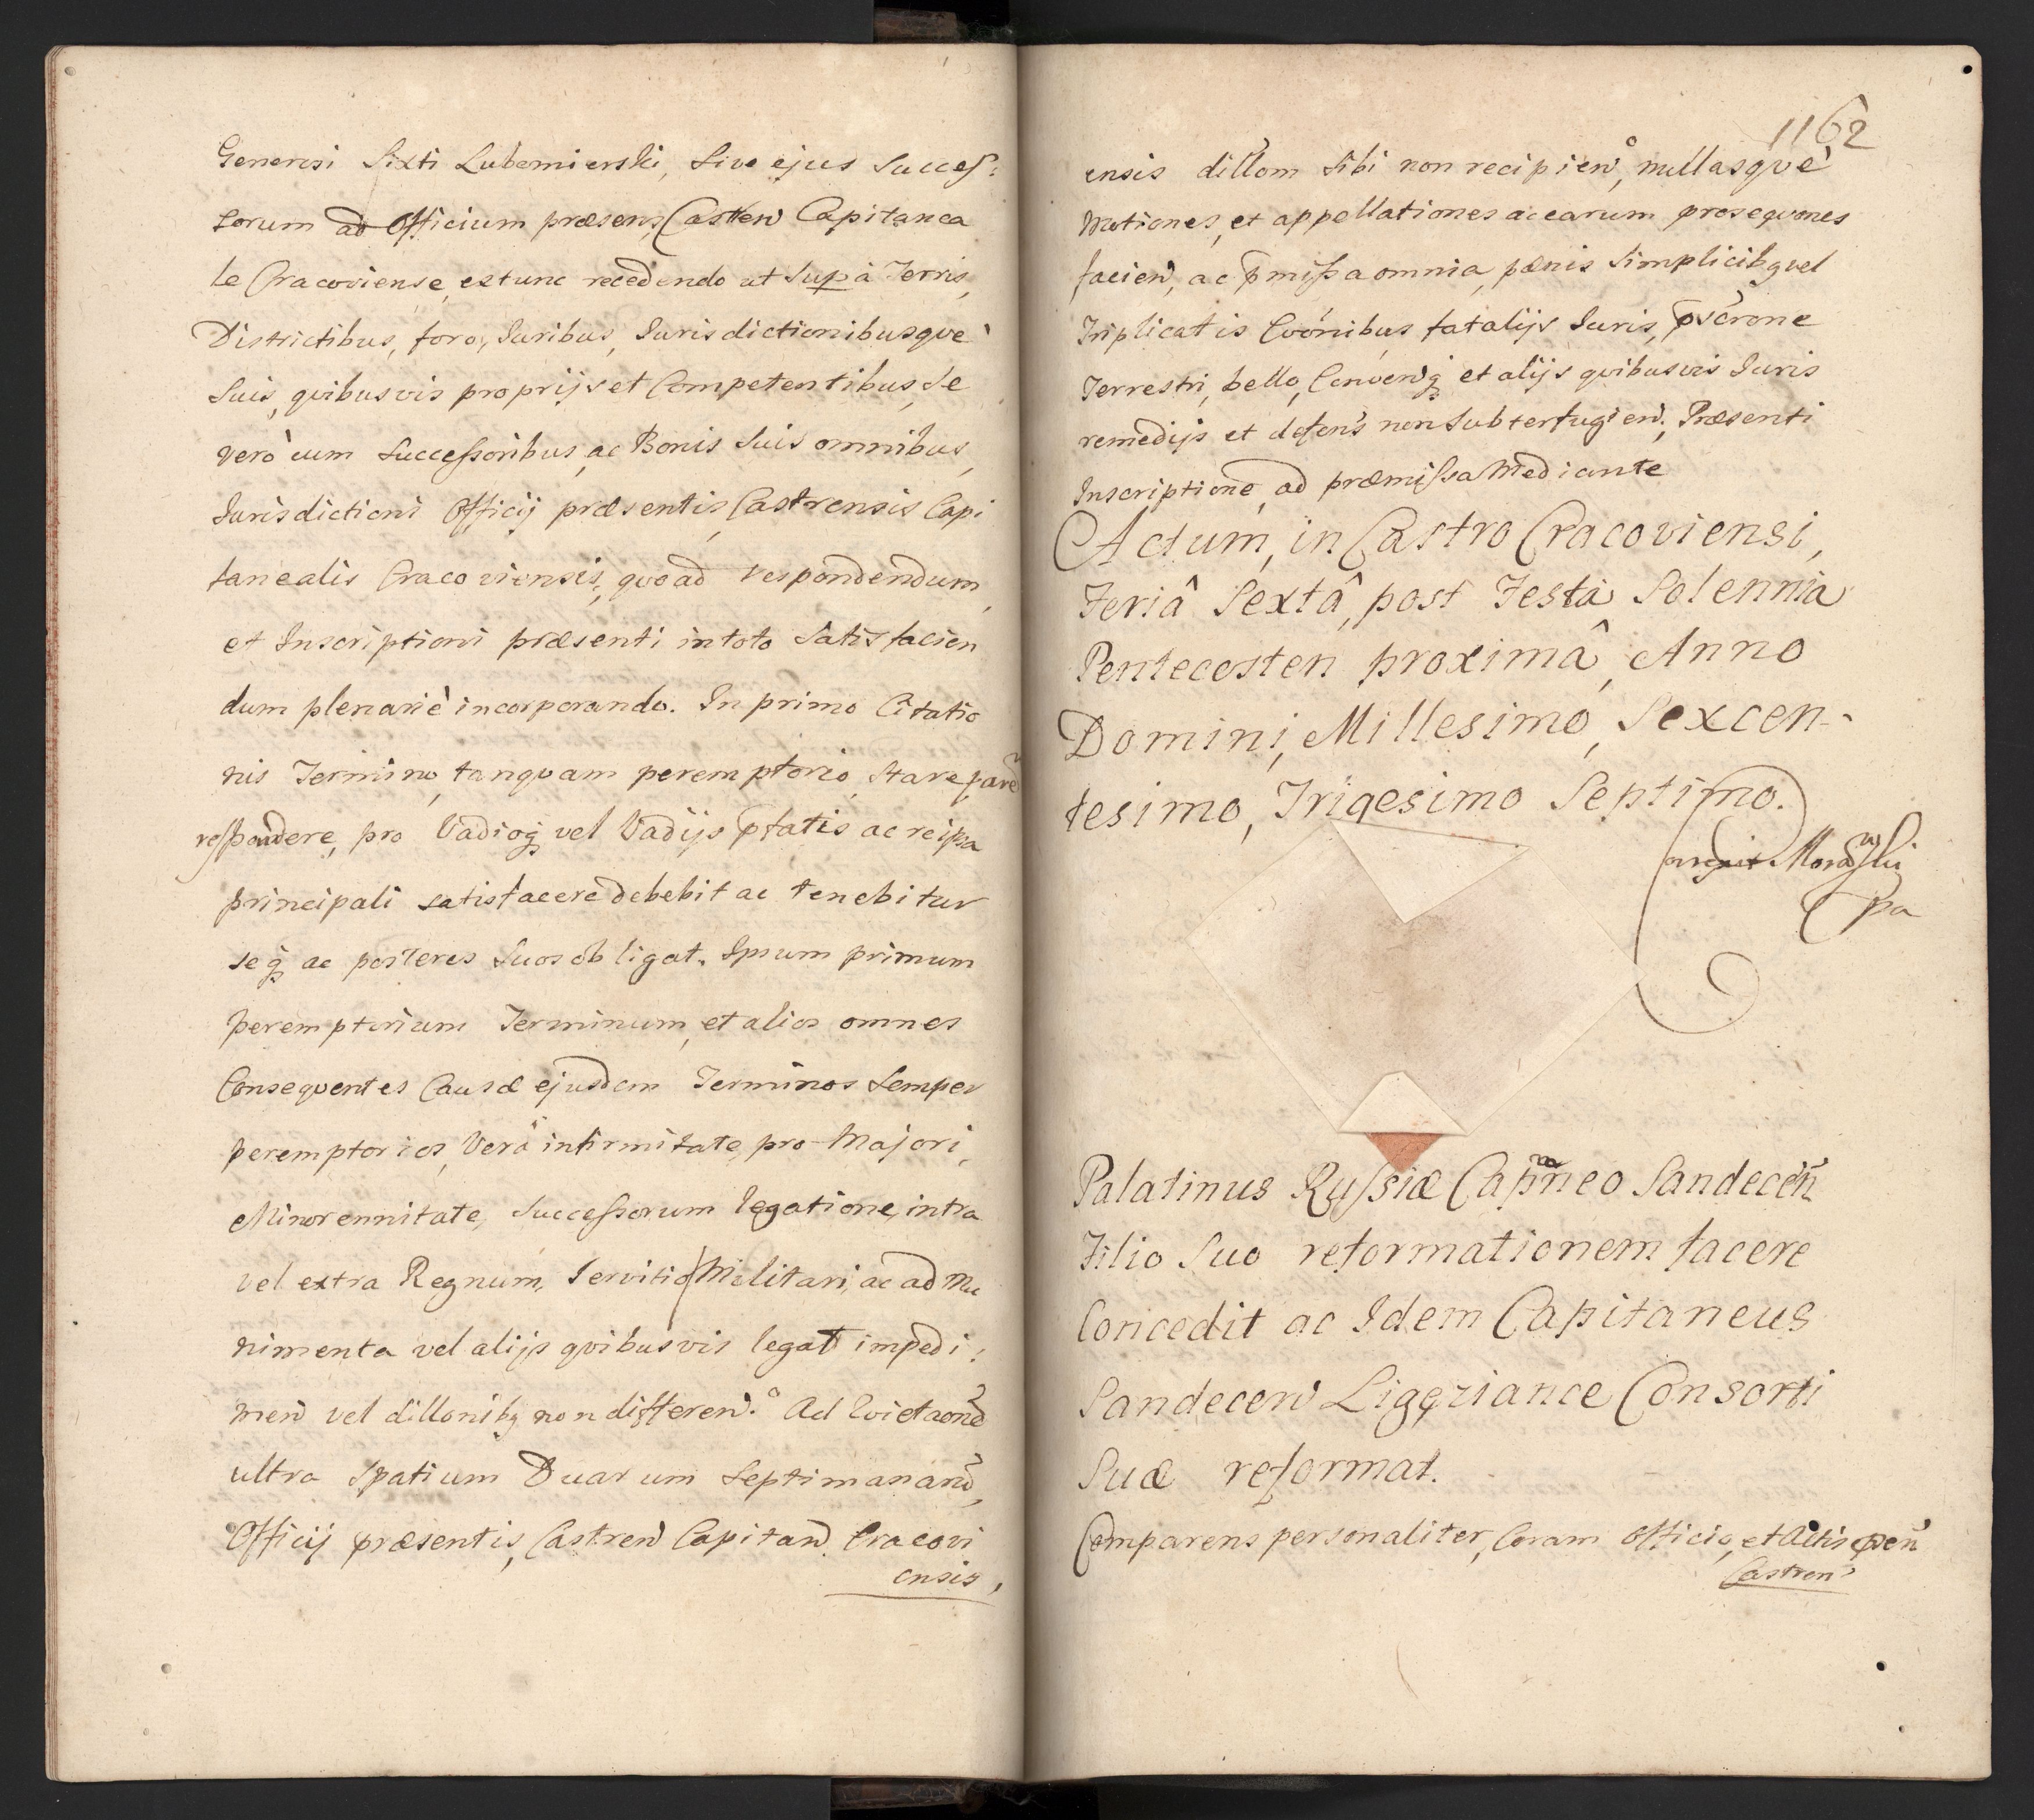 Generosi Sixti Lubomierski, sive ejus succes:
sorum ad Officium præsens, Castren Capitanea
le Cracoviense, ex tunc recedendo ut sup à Terris,
Districtibus, foro, Juribus, Jurisdictionibusqve
suis, qvibusvis proprijs et Competentibus, se
verò cum successoribus, ac Bonis suis omnibus,
Jurisdictioni Officij præsentis, Castrensis Capi
tanealis Cracoviensis, qvoad respondendum,
et Inscriptioni præsenti in toto satisfacien
dum plenariè incorporando. In primo Citatio
nis Termino, tanqvam peremptorio, stare, pare
respondere, pro Vadioq vel Vadijs ptatis ac re ipsa
principali satisfacere debebit ac tenebitur
seq ac posteros suos obligat. Ipsum primum
peremptorium Terminum, et alios omnes
Conseqventes Causæ ejusdem Terminos semper
peremptorios, verâ infirmitate, pro Majori,
Minorennitate, successorum legatione, intra
vel extra Regnum, servitio Militari, ac ad Mu
nimenta vel alijs qvibusvis legat impedi:
men vel dillonibq non differen. Ad Evictaone
ultra spatium Duarum septimanaru,
Officij præsentis, Castren Capitan Cracovi
ensis,
1162
ensis dillom sibi non recipien, nullasqve
motiones, et appellationes ac earum proseqvones
facien, ac pmissa omnia, pænis simplicibq vel
Triplicatis Coonibus fatalijs Juris, pscrone
Terrestri, bello, Convenq et alijs qvibusvis Juris
remedijs et defens non subterfugien, Præsenti
Inscriptione, ad præmissa Mediante
Actum, in Castro Cracoviensi,
Feriâ Sextâ, post Festa Solennia
Pentecosten proximâ, Anno
Domini, Millesimo, Sexcen-
tesimo, Trigesimo Septimo.
Palatinus Russiæ Capneo Sandecen
Filio Suo reformationem facere
Concedit ac Idem Capitaneus
Sandecen Ligęziance Consorti
Suæ reformat.
Comparens personaliter, Coram Officio, et Actis psen
Castren